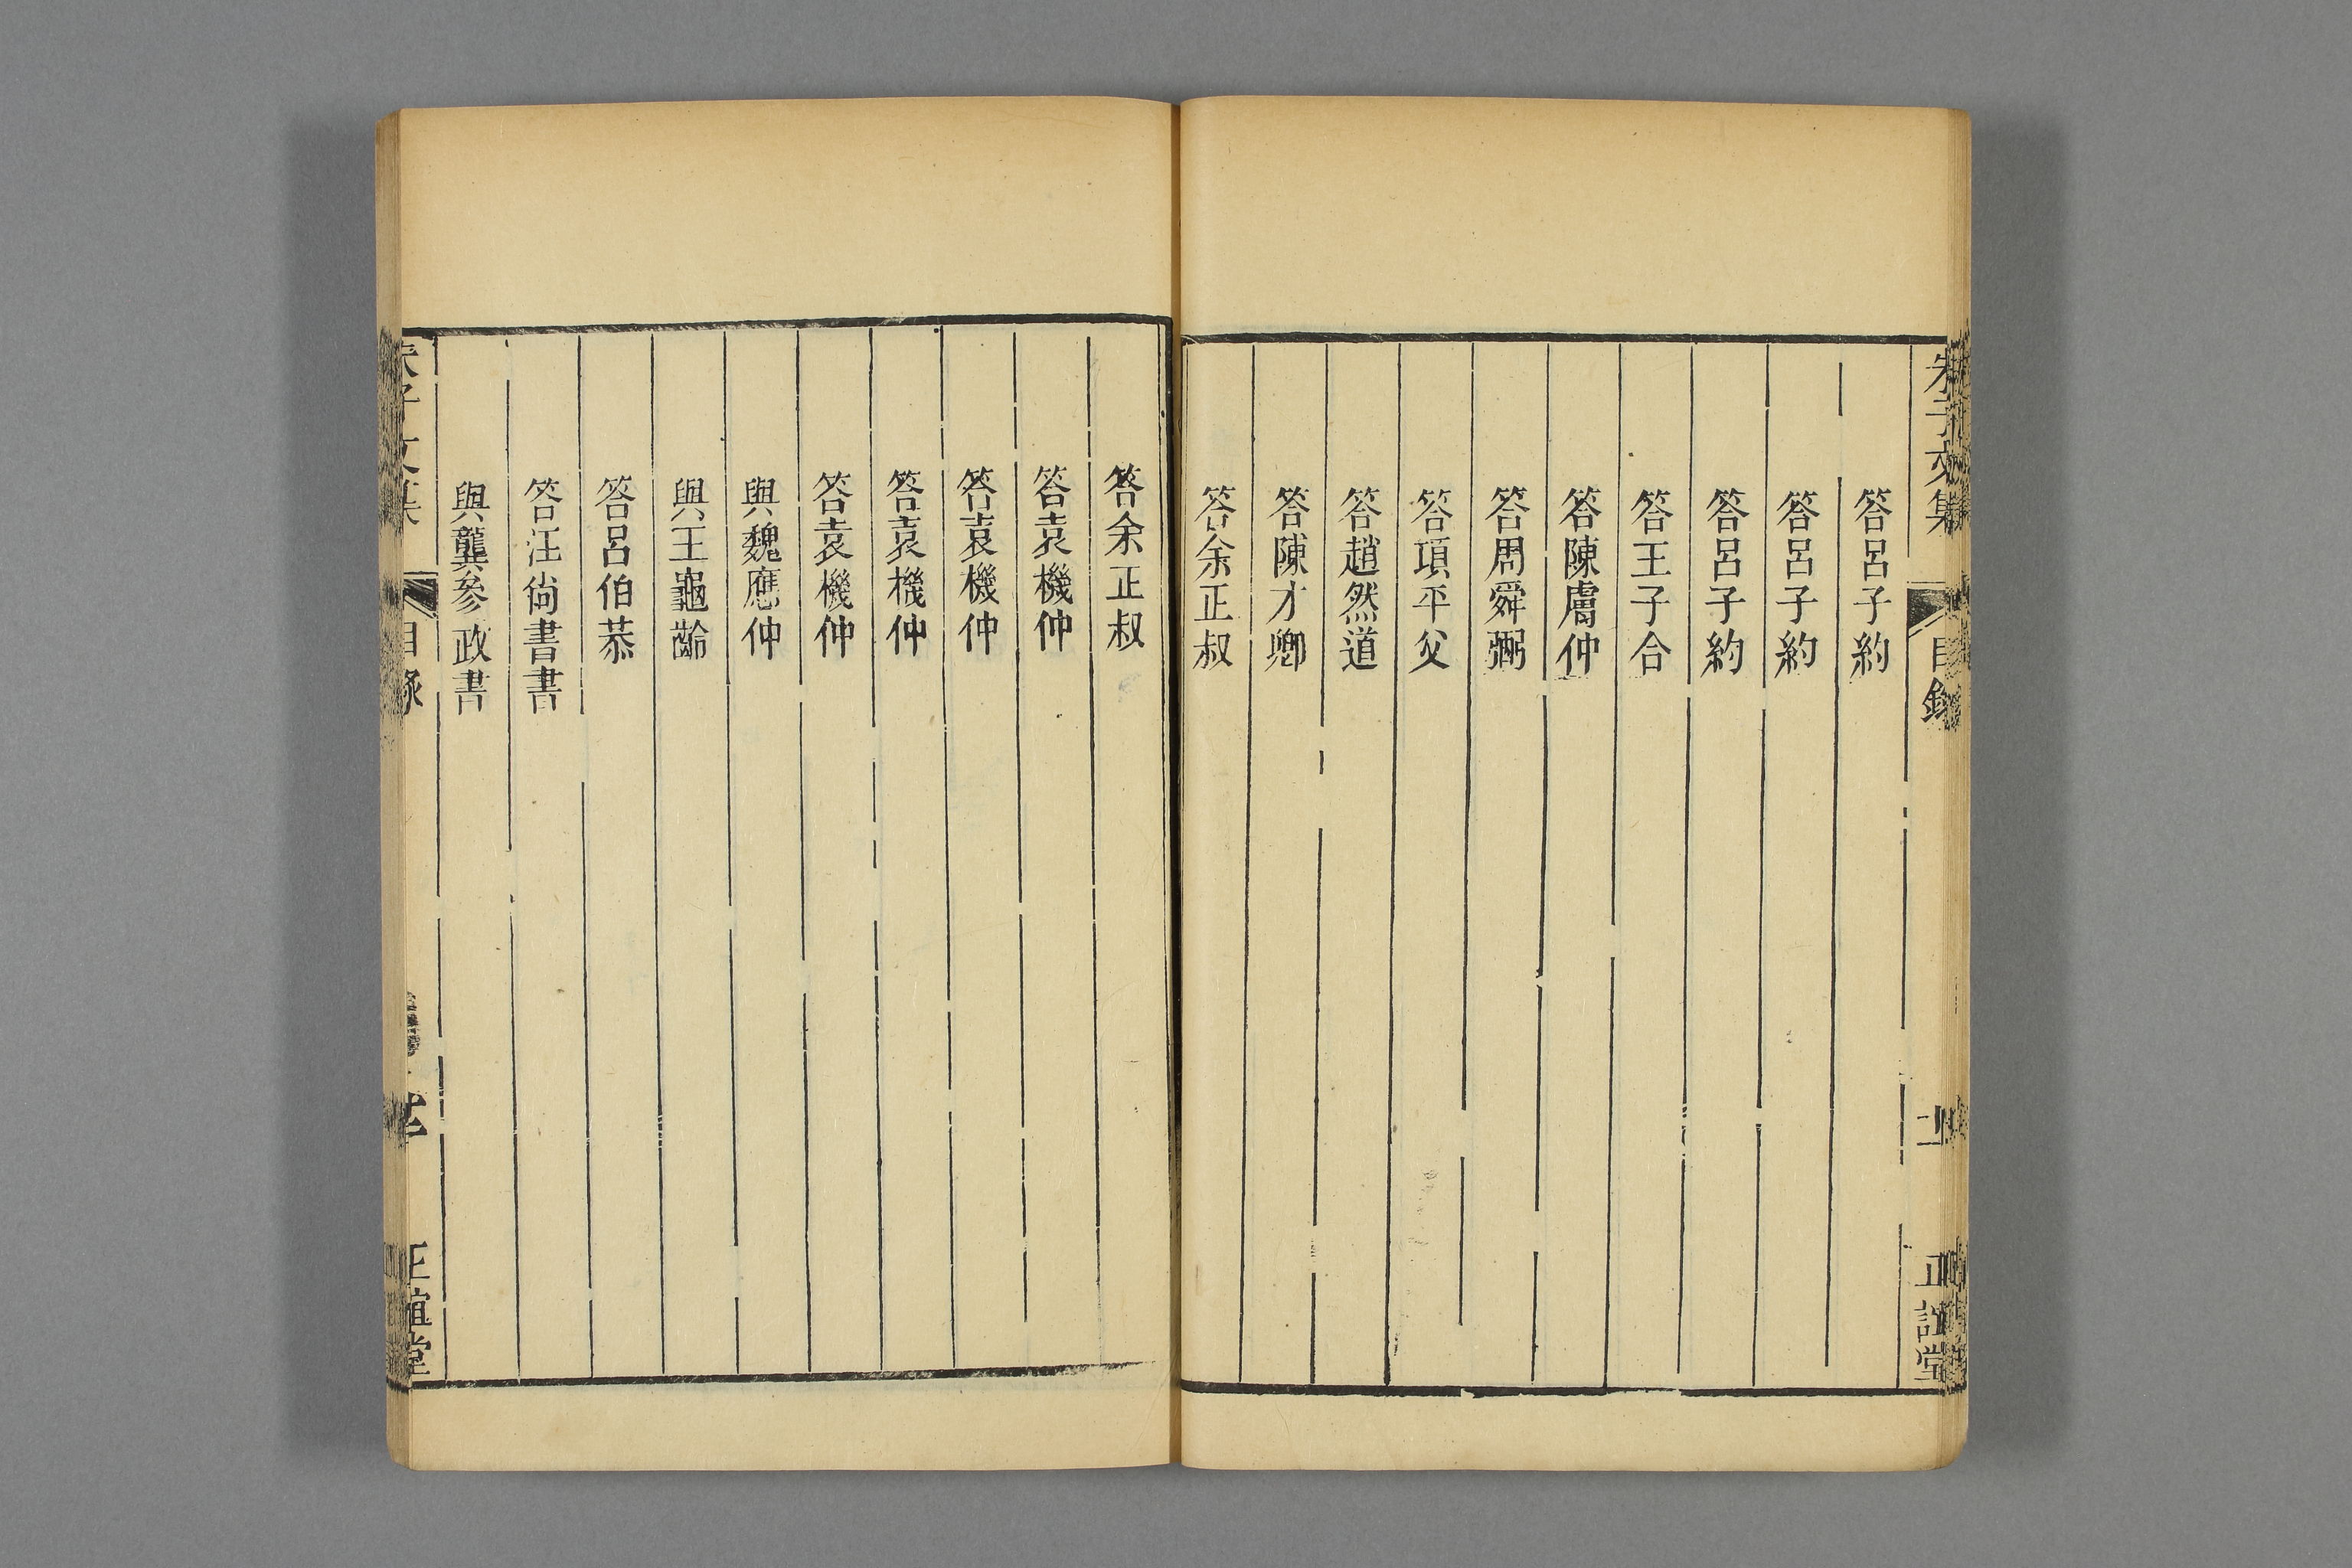 朱子文集 目錄 正誼堂
答呂子約
答呂子約
答呂子約
答王子合
答陳膚仲
答周舜弼
答項平父
答趙然道
答陳才卿
答余正叔
答余正叔
答袁機仲
答袁機仲
答袁機仲
答袁機仲
與魏應仲
與王龜齡
答呂伯恭
答汪尚書書
與龔參政書
朱子文集 目錄 正誼堂